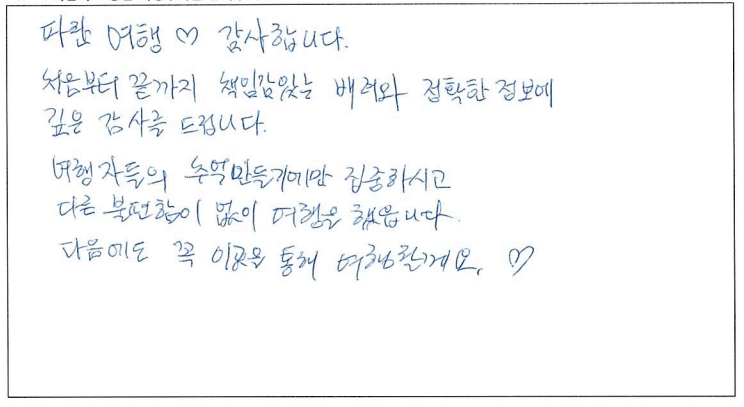 파란 여행 ♡ 감사합니다.
처음부터 끝까지 책임감있는 배려와 정확한 정보에
깊은 감사를 드립니다.
여행자들의 추억만들기에만 집중하시고
다른 불편함이 없이 여행을 했읍니다.
다음에도 꼭 이곳을 통해 여행할게요. ♡